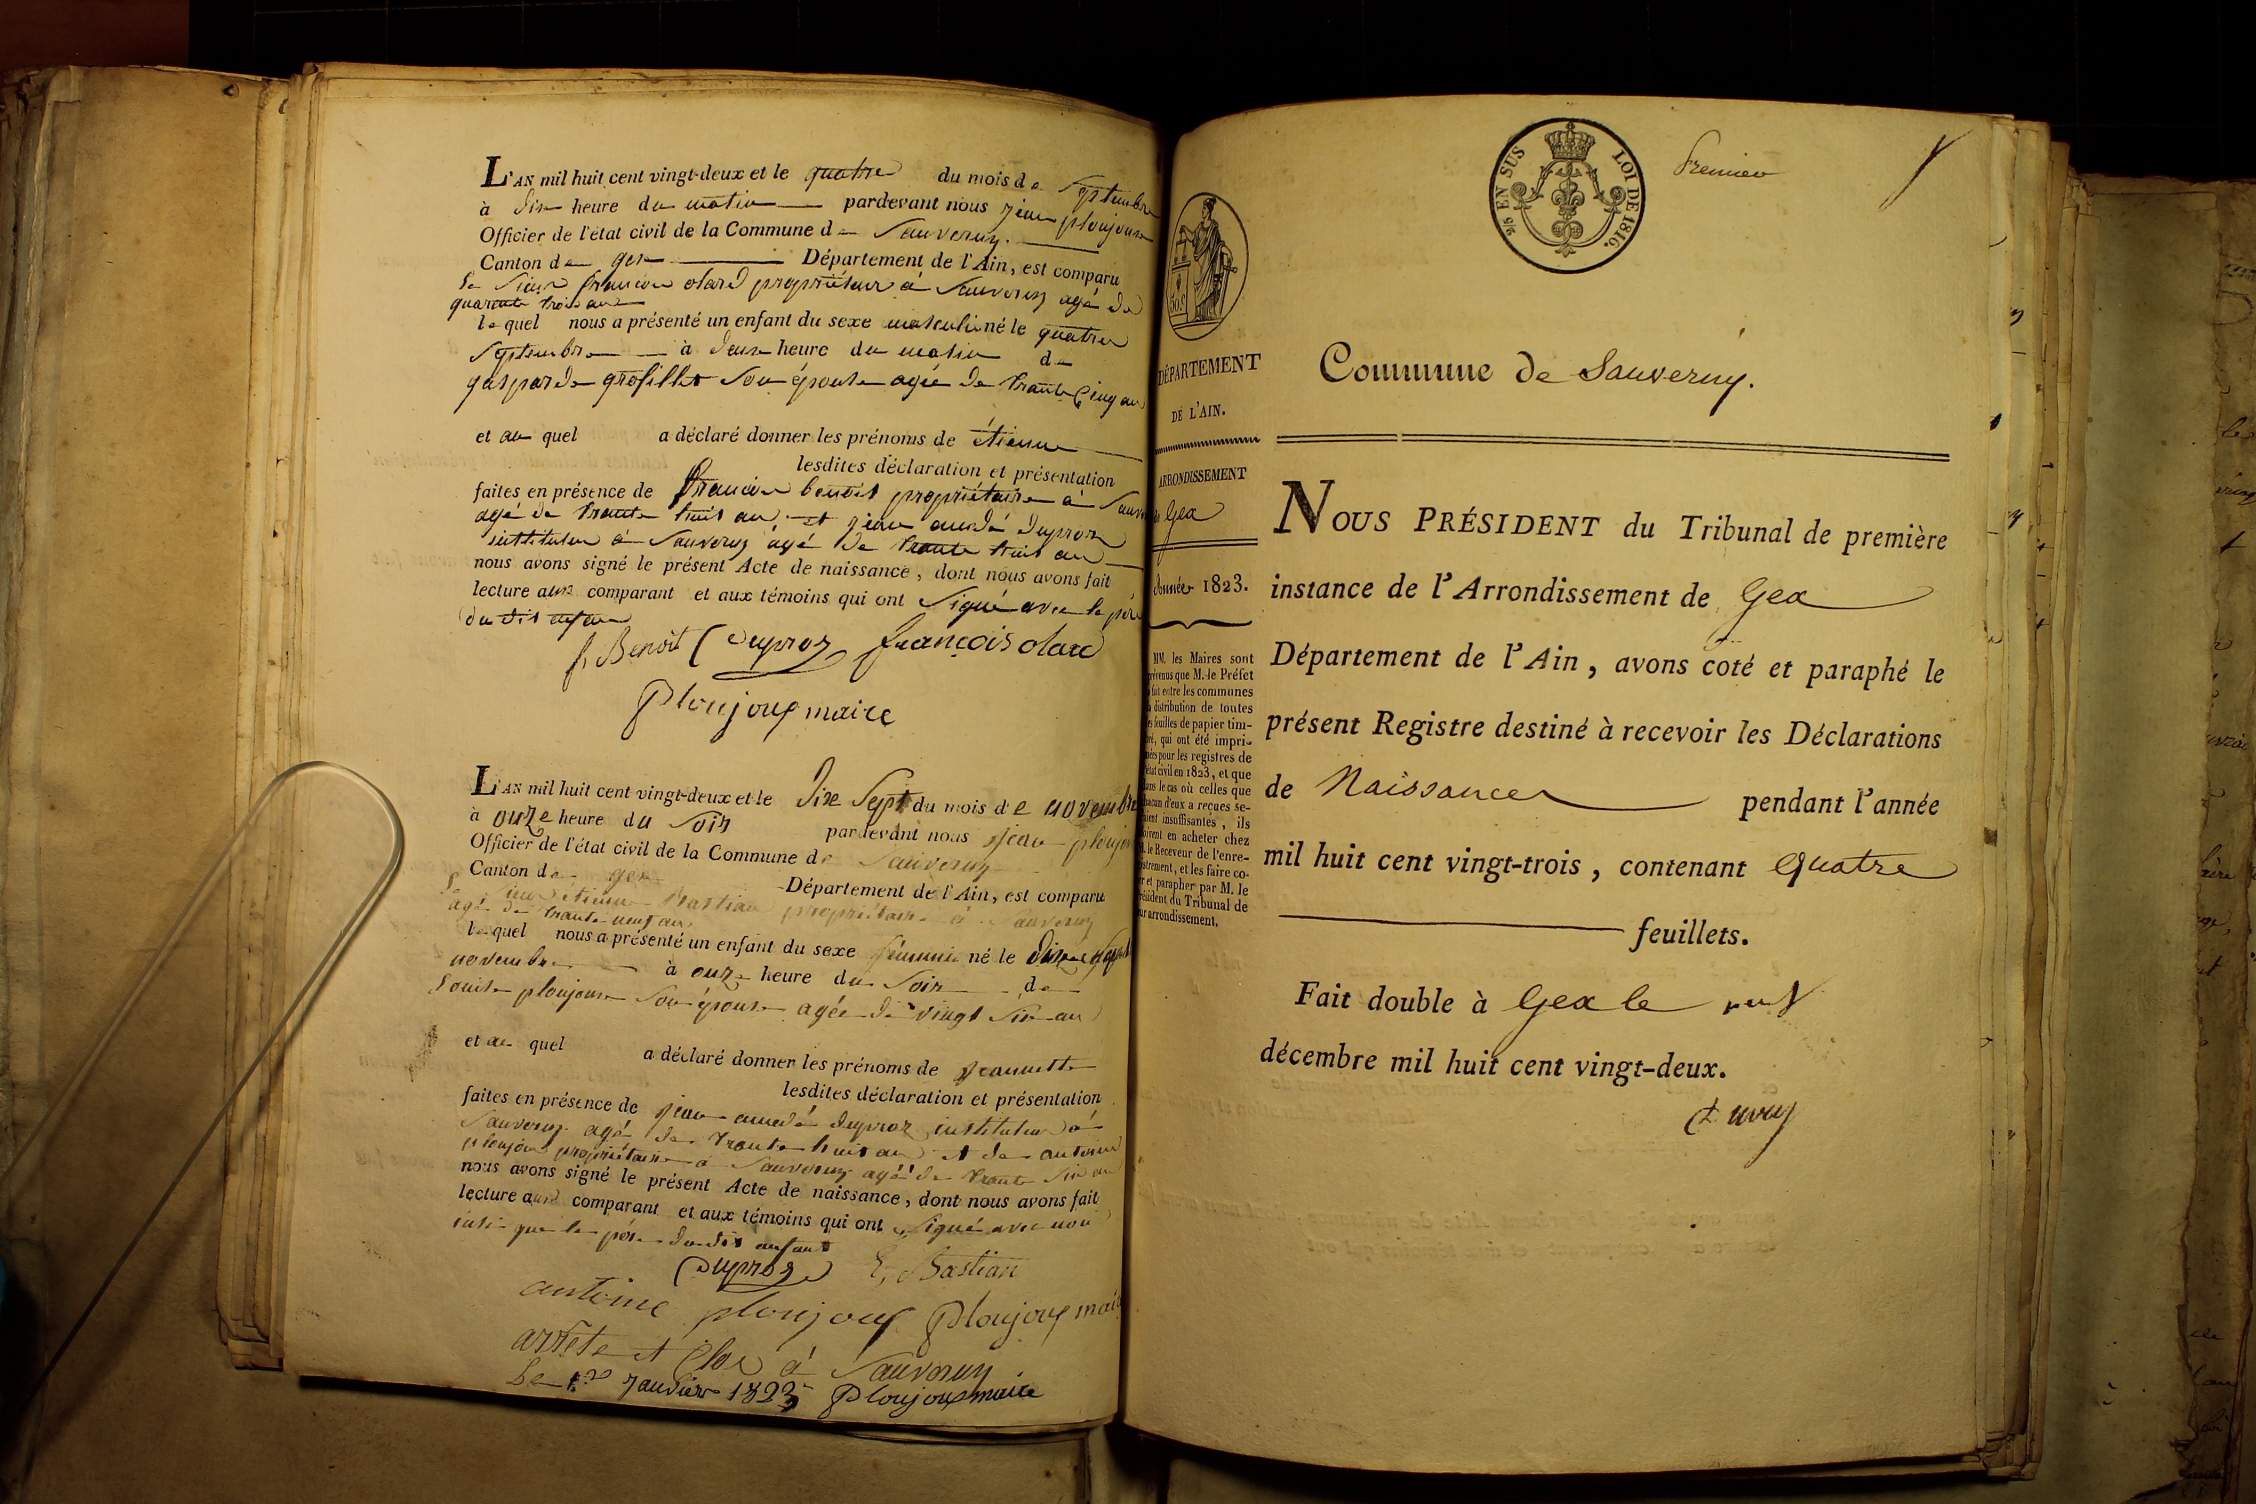 L'AN mil huit cent vingt-deux et le quatre du mois de septembre
à dix heure du matin pardevant nous jean ploujoux
Officier de l'état civil de la Commune de Sauverny.
Canton de gex Département de l'Ain, est comparu
le Sieur françois olard propriétaire à Sauverny agé de
quarante trois ans
lequel nous a présenté un enfant du sexe masculin né le quatre
septembre à deux heure du matin de
gasparde grosillet son épouse agée de trante cinq ans
et au quel a déclaré donner les prénoms de étienne
lesdites déclaration et présentation
faites en présence de françois benoit propriétaire à
agé de trante huit ans et jean amédé duproz
instituteur à Sauverny agé de trante huit ans
nous avons signé le présent Acte de naissance, dont nous avons fait
lecture aux comparant et aux témoins qui ont signé avec le père
du dit enfant
f. Benoit Duproz françois olard
Ploujoux maire
L'AN mil huit cent vingt-deux et le dix sept du mois de novembre
à onze heure du soir pardevant nous jean
Officier de l'état civil de la Commune de Sauverny
Canton de gex Département de l'Ain, est comparu
le Sieur étienne bastian propriétaire à Sauverny
agé de trante neuf ans
lequel nous a présenté un enfant du sexe féminin né le dix sept
novembre à onze heure du soir de
Louise ploujoux son épouse agée de vingt six ans
et au quel a déclaré donner les prénoms de jeannette
lesdites déclaration et présentation
faites en présence de jean amédé duproz instituteur à
Sauverny agé de trante huit ans et de antoine
ploujoux propriétaire à Sauverny agé de trante six ans
nous avons signé le présent Acte de naissance, dont nous avons fait
lecture aux comparant et aux témoins qui ont signé avec nous
insi que le père du dit enfant
Duproz E, Bastian
antoine ploujoux Ploujoux maire
arrêté et clos à Sauverny
Le 1er Janvier 1823 Ploujoux maire
EN SUS LOI DE 1816.
Premier
50 c
DÉPARTEMENT
DE L'AIN.
ARRONDISSEMENT
de Gex
Année 1823.
MM. les Maires sont
prévenus que M. le Préfet
a fait entre les communes
la distribution de toutes
les feuilles de papier tim-
bré, qui ont été impri-
mées pour les registres de
l'état civil en 1823, et que
dans le cas où celles que
chacun d'eux a reçues se-
raient insuffisantes, ils
doivent en acheter chez
M. le Receveur de l'enre-
gistrement, et les faire co-
ter et parapher par M. le
Président du Tribunal de
leur arrondissement.
Commune de Sauverny.
NOUS PRÉSIDENT du Tribunal de première
instance de l'Arrondissement de Gex
Département de l'Ain, avons coté et paraphé le
présent Registre destiné à recevoir les Déclarations
de Naissances pendant l'année
mil huit cent vingt-trois, contenant Quatre
feuillets.
Fait double à Gex le neuf
décembre mil huit cent vingt-deux.